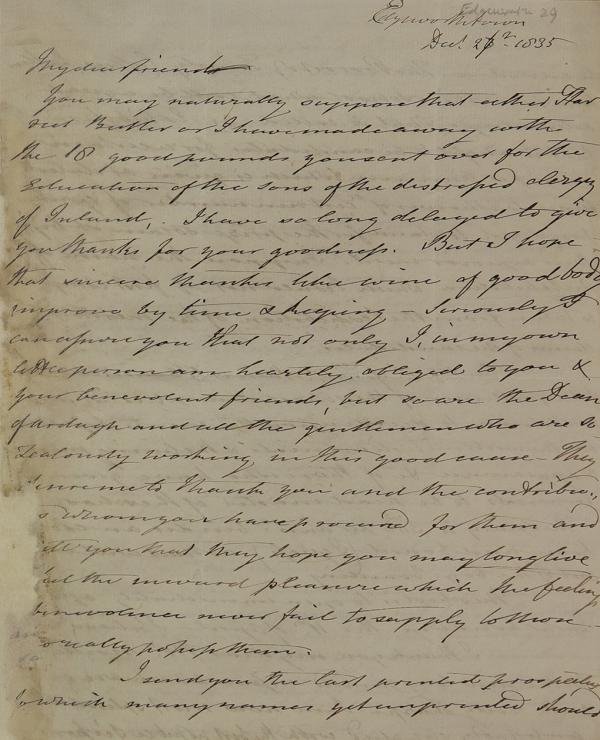 Edgeworth 29
Edgeworthstown
Dec. 26th 1835
My dear friend
You may naturally suppose that either Har
riet Butler or I have made away with
the 18 good pounds you sent over for the
Education of the sons of the distressed clergy
of Ireland, I have so long delayed to give
you thanks for your goodness. But I hope
that sincere thanks like wine of good body
improve by time & keeping – Seriously I
can assure you that not only I, in my own
little person am heartily obliged to you &
your benevolent friends, but so are the Dean
of Ardagh and all the gentlemen who are so
zealously working in this good cause – They
desire me to thank you and the contribu-
whom you have procured for them and
tell you that they hope you may long live
the inward pleasure which the feelings
benevolence never fail to supply to those
really possess them.
I send you the last printed prospectus
to which many names yet unprinted should